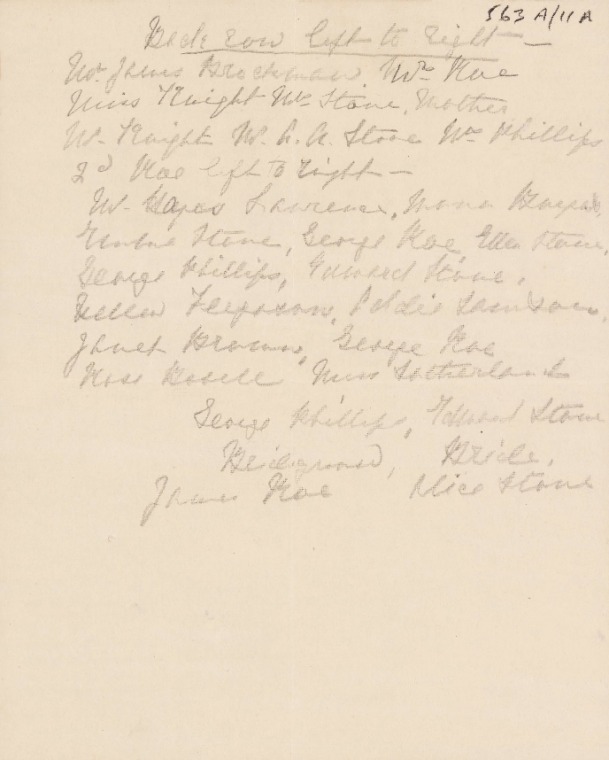 563 A/11A
Back row left to right —
Mr. James Brockman Mrs Roe
Miss Knight Mrs Stone, Mother
Mr. Knight Mr. A. Stone Mrs Phillips
2d Roe left to right —
Mr. Lawrence,
Stone, George Roe, Ellen Stone,
George Phillips, Edward Stone,
Ferguson,
Janet Brown, George Roe
Rose Miss Sotherland
George Phillips, Edward Stone
Bridegroom, Bride,
James Roe Alice Stone